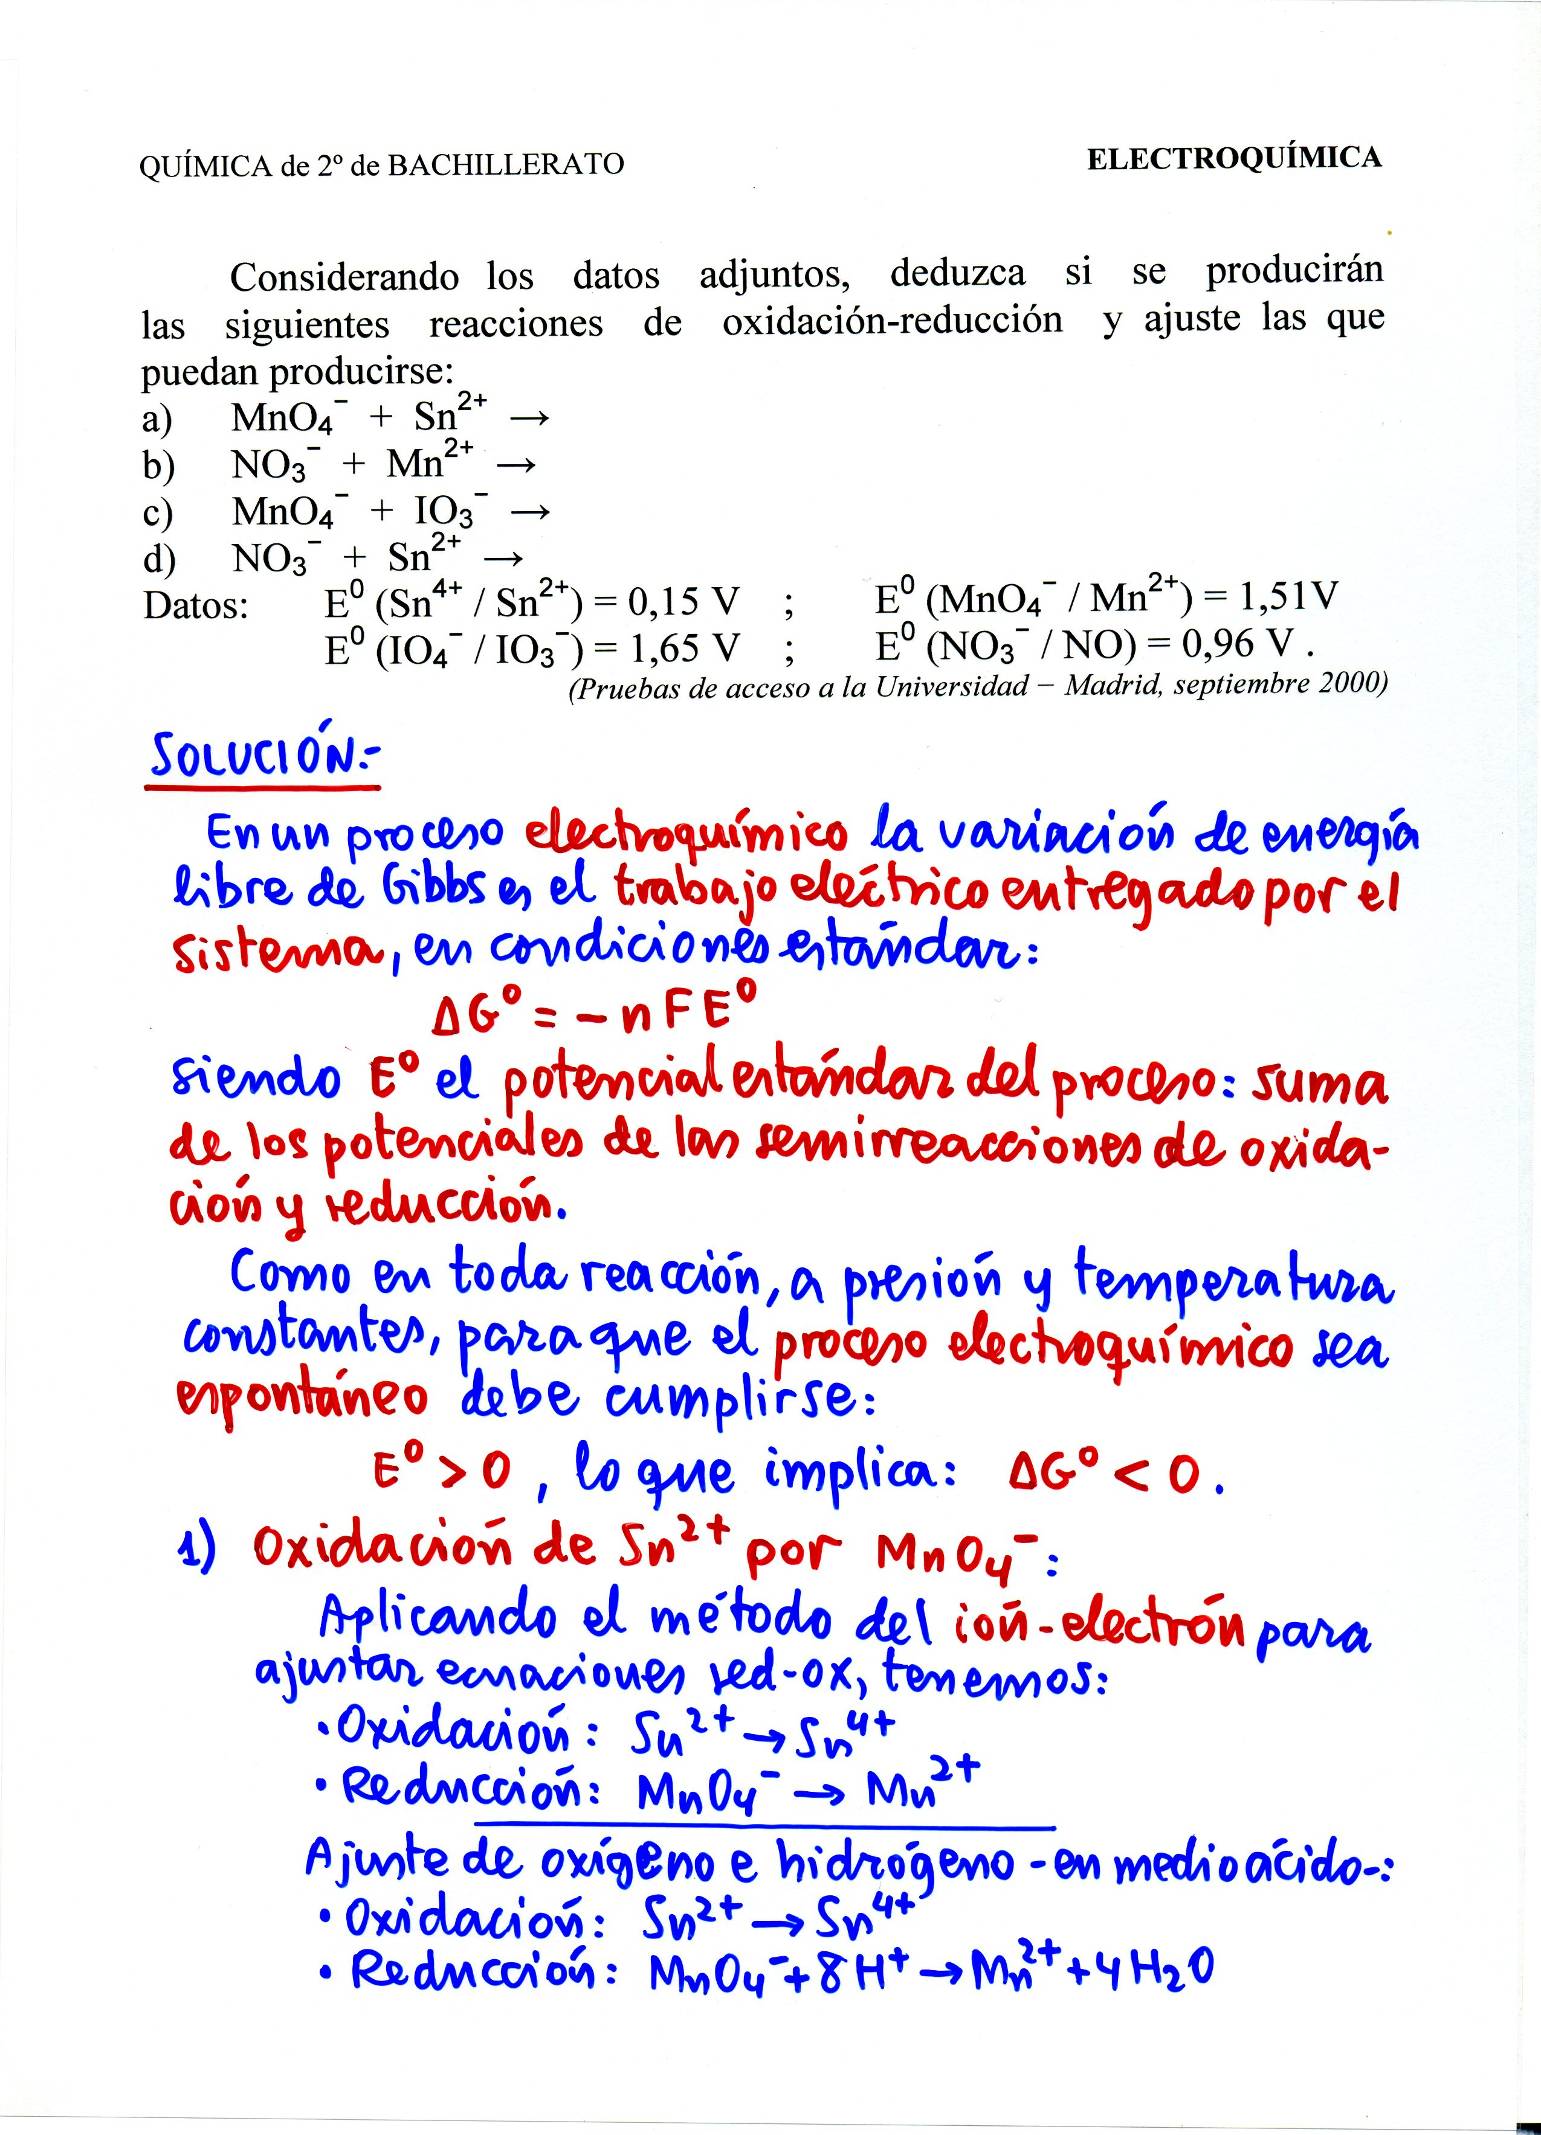 QUÍMICA de 2º de BACHILLERATO ELECTROQUÍMICA
Considerando los datos adjuntos, deduzca si se producirán
las siguientes reacciones de oxidación-reducción y ajuste las que
puedan producirse:
a) MnO₄⁻ + Sn²⁺ →
b) NO₃⁻ + Mn²⁺ →
c) MnO₄⁻ + IO₃⁻ →
d) NO₃⁻ + Sn²⁺ →
Datos: E⁰ (Sn⁴⁺ / Sn²⁺) = 0,15 V ; E⁰ (MnO₄⁻ / Mn²⁺) = 1,51V
E⁰ (IO₄⁻ / IO₃⁻) = 1,65 V ; E⁰ (NO₃⁻ / NO) = 0,96 V .
(Pruebas de acceso a la Universidad − Madrid, septiembre 2000)
SOLUCIÓN:-
En un proceso electroquímico la variación de energía
libre de Gibbs es el trabajo eléctrico entregado por el
sistema, en condiciones estándar:
ΔG⁰ = - n F E⁰
siendo E⁰ el potencial estándar del proceso: suma
de los potenciales de las semirreacciones de oxida-
ción y reducción.
Como en toda reacción, a presión y temperatura
constantes, para que el proceso electroquímico sea
espontáneo debe cumplirse:
E⁰ > 0 , lo que implica: ΔG⁰ < 0 .
1) Oxidación de Sn²⁺ por MnO₄⁻:
Aplicando el método del ión-electrón para
ajustar ecuaciones red-ox, tenemos:
• Oxidación: Sn²⁺ → Sn⁴⁺
• Reducción: MnO₄⁻ → Mn²⁺
Ajuste de oxígeno e hidrógeno - en medio ácido-:
• Oxidación: Sn²⁺ → Sn⁴⁺
• Reducción: MnO₄⁻ + 8H⁺ → Mn²⁺ + 4H₂O